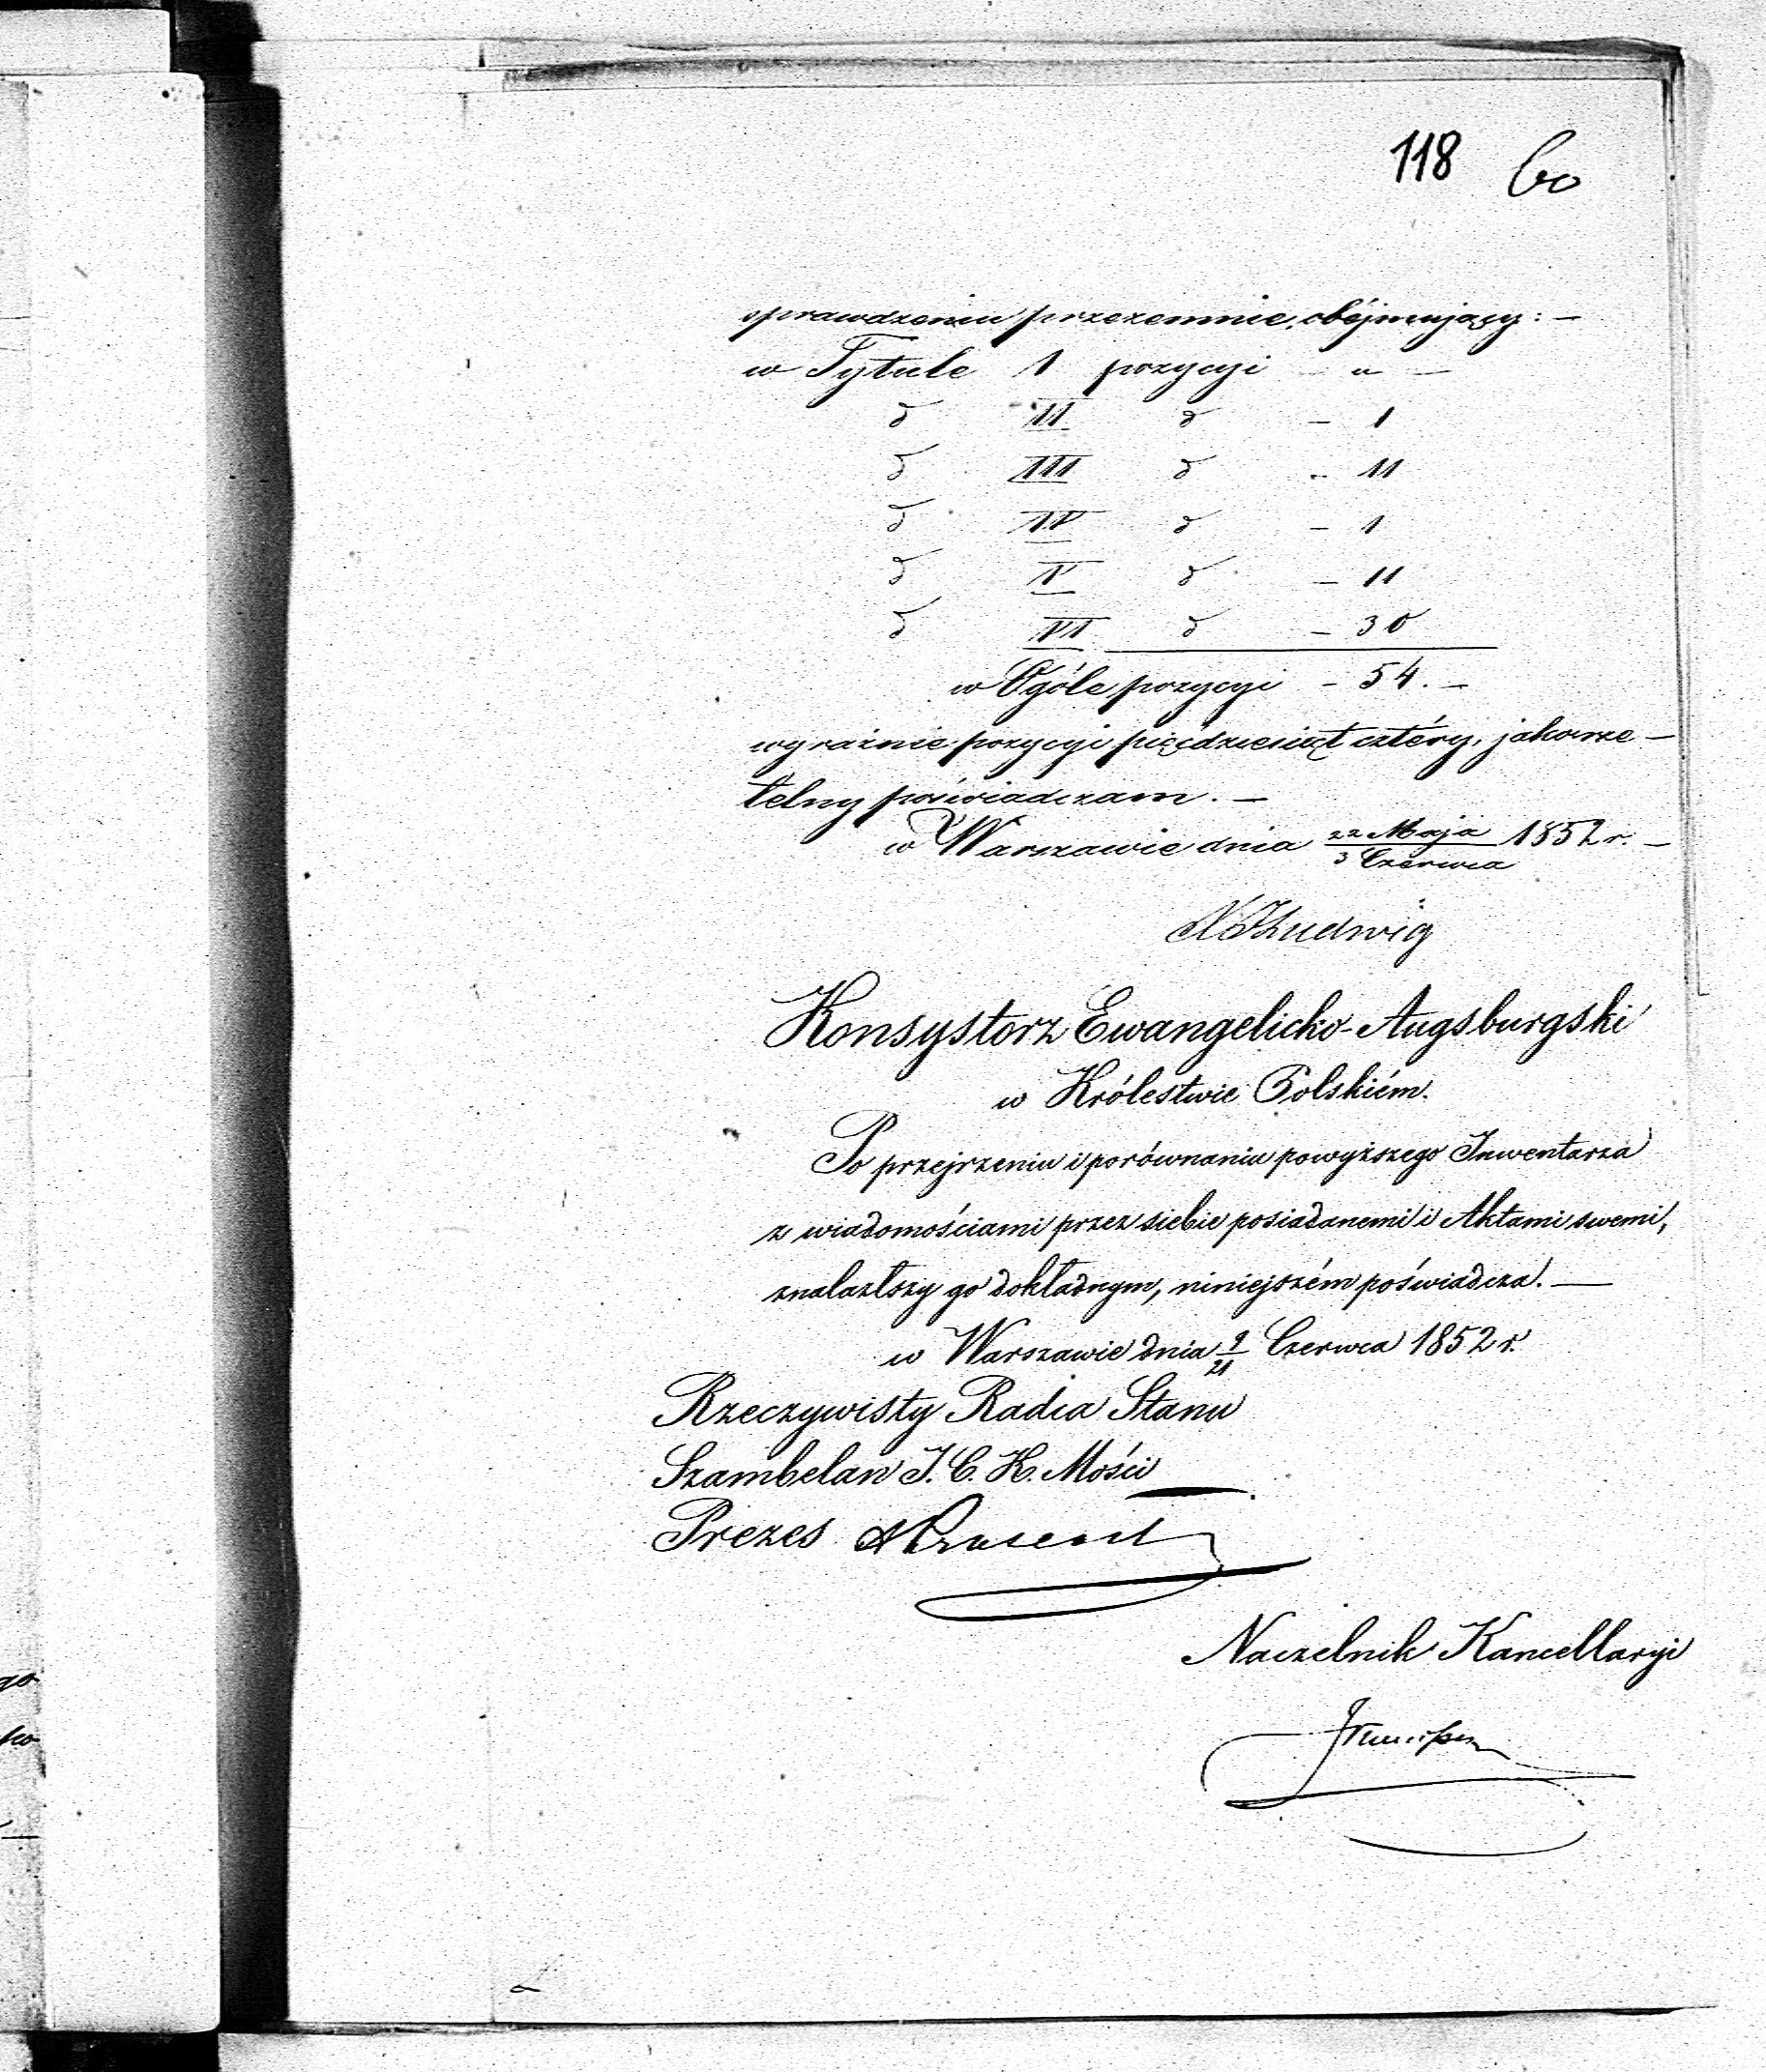 118 60
sprawdzeniu przezemnie, obéjmujący: —
w Tytule I pozycyi - „ —
d II d - 1
d III d - 11
d IV d - 1
d V d - 11
d VI d - 30
w Ogóle pozycyi - 54. —
wyraźnie pozycyi pięćdziesiąt cztéry, jako rze-
telny poświadczam. —
w Warszawie dnia 22 Maja / 3 Czerwca 1852 r. —
Ludwig
Konsystorz Ewangelicko-Augsburgski
w Królestwie Polskiém.
Po przejrzeniu i porównaniu powyższego Inwentarza
z wiadomościami przez siebie posiadanemi i Aktami swemi,
znalazłszy go dokładnym, niniejszém poświadcza. —
w Warszawie dnia 9/21 Czerwca 1852 r.
Rzeczywisty Radca Stanu
Szambelan J. C. K. Mości
Prezes
Naczelnik Kancellaryi
go
ko